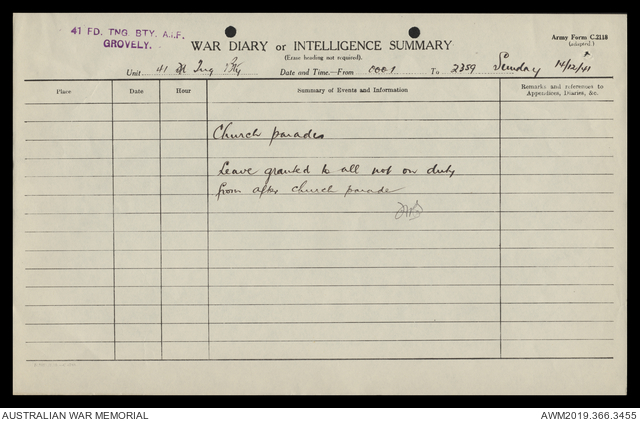 41 FD. TNG. BTY. A.I.F.
GROVELY.
Army Form C.2118
(adapted.)
WAR DIARY or INTELLIGENCE SUMMARY
(Erase heading not required).
Unit 41 Fd Tng Bty Date and Time.—From 0001 To 2359 Sunday 14/12/41
Place Date Hour Summary of Events and Information Remarks and references to Appendices, Diaries, &c.
Church parades
Leave granted to all not on duty
from after church parade
AUSTRALIAN WAR MEMORIAL AWM2019.366.3455